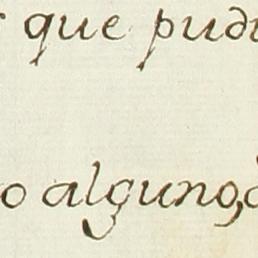 que pudi
o alguno,